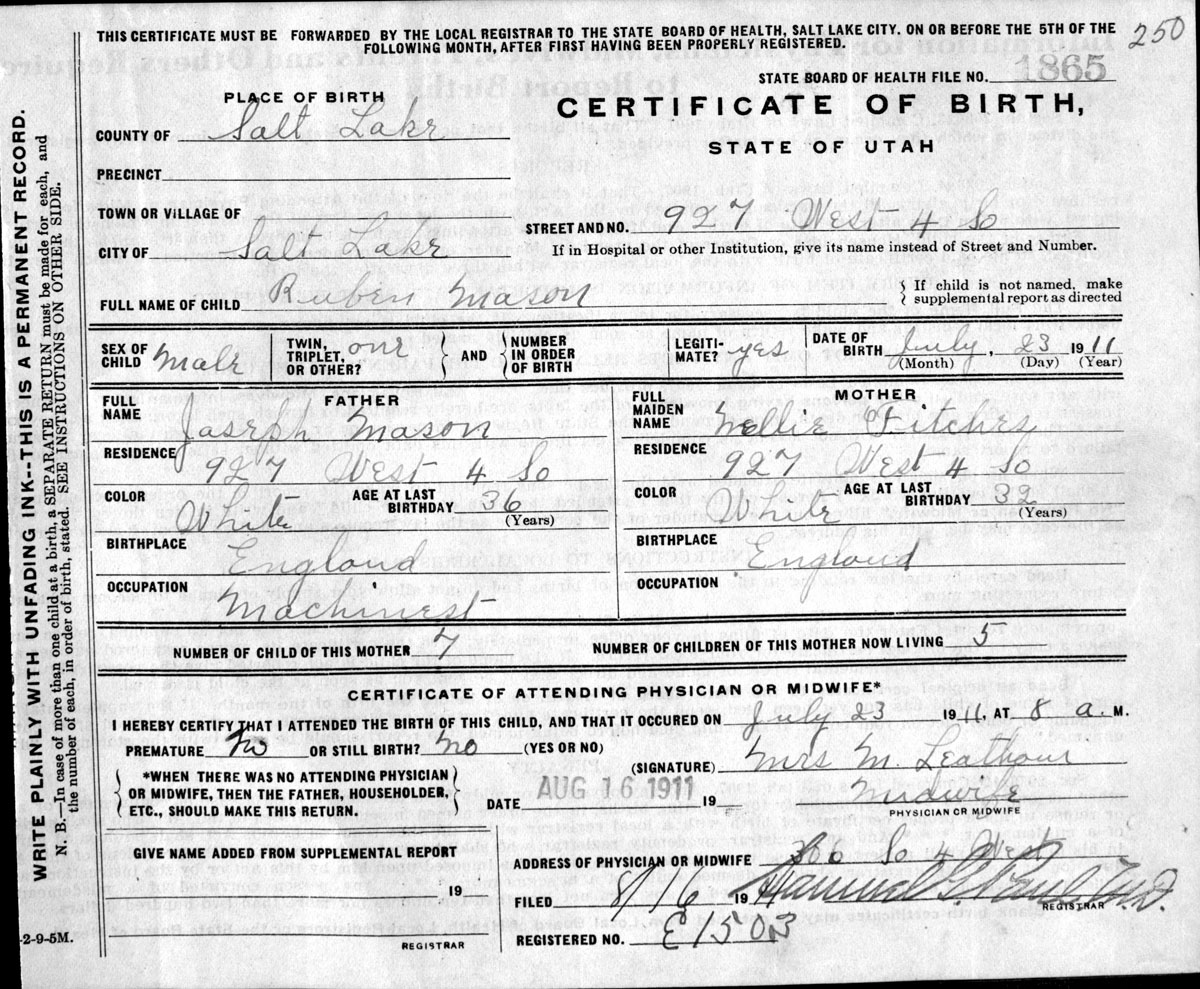 THIS CERTIFICATE MUST BE FORWARDED BY THE LOCAL REGISTRAR TO THE STATE BOARD OF HEALTH, SALT LAKE CITY, ON OR BEFORE THE 5TH OF THE
FOLLOWING MONTH, AFTER FIRST HAVING BEEN PROPERLY REGISTERED.
250
STATE BOARD OF HEALTH FILE NO. 1865
PLACE OF BIRTH
CERTIFICATE OF BIRTH,
COUNTY OF Salt Lake
STATE OF UTAH
PRECINCT
TOWN OR VILLAGE OF
STREET AND NO. 927 West 4 So
CITY OF Salt Lake
If in Hospital or other Institution, give its name instead of Street and Number.
FULL NAME OF CHILD Ruben Mason
If child is not named, make
supplemental report as directed
SEX OF CHILD Male
TWIN, TRIPLET, OR OTHER? one
AND
NUMBER IN ORDER OF BIRTH
LEGITI-MATE? yes
DATE OF BIRTH July, 23 1911
(Month) (Day) (Year)
FATHER
FULL NAME Joseph Mason
RESIDENCE
927 West 4 So
COLOR White
AGE AT LAST BIRTHDAY 36
(Years)
BIRTHPLACE
England
OCCUPATION
Machinest
MOTHER
FULL MAIDEN NAME Nellie Fitches
RESIDENCE
927 West 4 So
COLOR White
AGE AT LAST BIRTHDAY 32
(Years)
BIRTHPLACE England
OCCUPATION
NUMBER OF CHILD OF THIS MOTHER 7
NUMBER OF CHILDREN OF THIS MOTHER NOW LIVING 5
CERTIFICATE OF ATTENDING PHYSICIAN OR MIDWIFE*
I HEREBY CERTIFY THAT I ATTENDED THE BIRTH OF THIS CHILD, AND THAT IT OCCURED ON July 23 1911, AT 8 a. M.
PREMATURE No OR STILL BIRTH? No (YES OR NO)
(SIGNATURE) Mrs M. Leatham
*WHEN THERE WAS NO ATTENDING PHYSICIAN
OR MIDWIFE, THEN THE FATHER, HOUSEHOLDER,
ETC., SHOULD MAKE THIS RETURN.
DATE AUG 16 1911 19
Midwife
PHYSICIAN OR MIDWIFE
GIVE NAME ADDED FROM SUPPLEMENTAL REPORT
19
REGISTRAR
ADDRESS OF PHYSICIAN OR MIDWIFE So 4 West
FILED 8/16 1911
REGISTRAR
REGISTERED NO. E1503
2-9-5M.
WRITE PLAINLY WITH UNFADING INK--THIS IS A PERMANENT RECORD.
N. B.—In case of more than one child at a birth, a SEPARATE RETURN must be made for each, and
the number of each, in order of birth, stated. SEE INSTRUCTIONS ON OTHER SIDE.